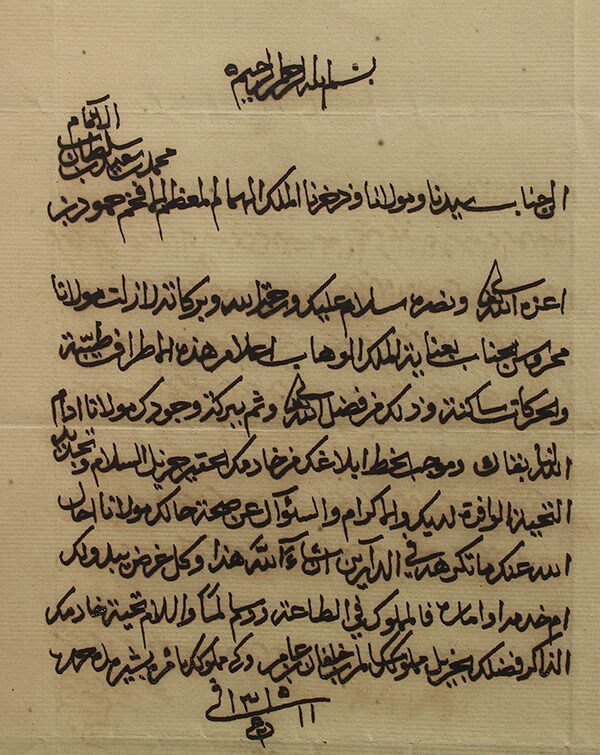 بسم الله الرحمن الرحيم
الامام
سلطان
محمد بن
الى جناب سيدنا ومولانا وذخرنا الملك الهمام المعظم الافخم حمود بن
اعزه الله تعالى ونصره سلام عليك ورحمة الله وبركاته لا زلت مولانا
محروس الجناب بعناية الملك الوهاب اعلام هذه الاطراف طيبة
والحركات ساكنة وذلك من فضل الله تعالى وثم ببركة وجودك مولانا ادام
الله لنا بقاك وموجب الخط ابلاغك من خادمك الحقير جزيل السلام
التحية الوافرة لديك والاكرام والسؤال عن صحة حالك مولانا احال
الله عنك ما تكرهه في الدارين ان شاء الله هذا وكل غرض يبدو لك
ام خدمه او اماره فالمملوك في الطاعة ودم سالما والسلام تحية خادمك
الذاكر فضلك الجزيل مملوكك خلفان بن عامر
في